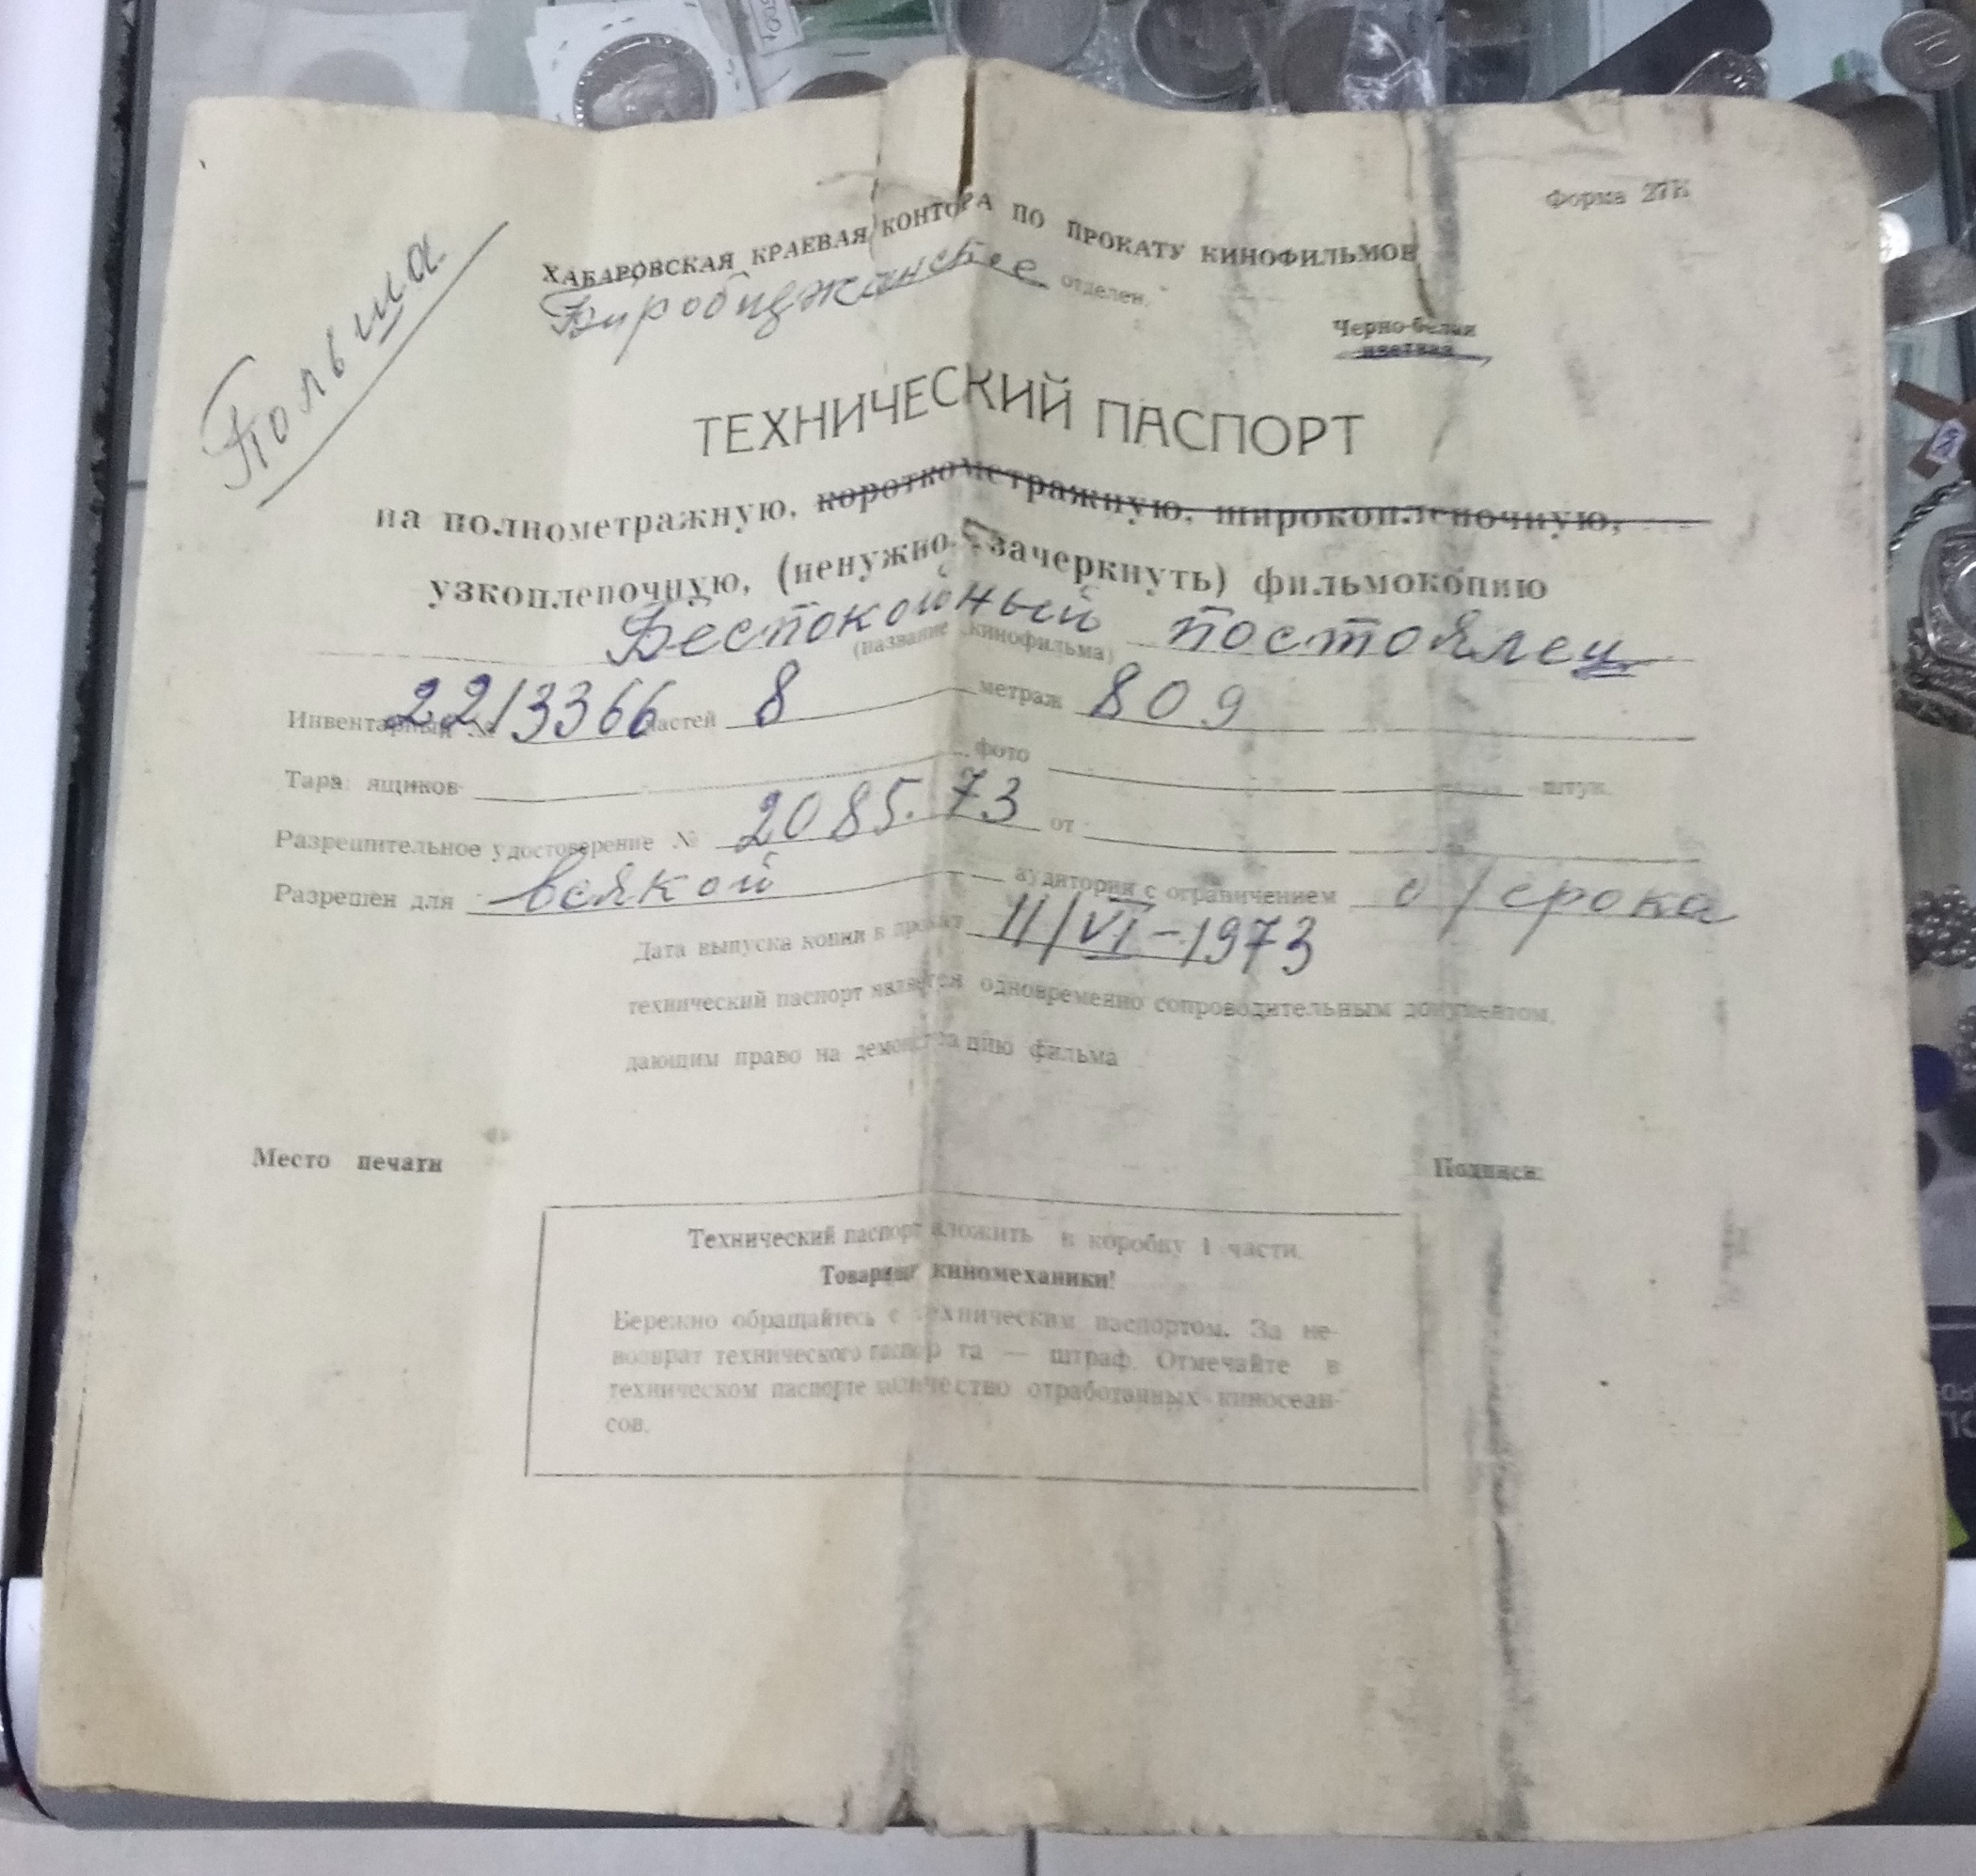 Форма 27К
Польша.
ХАБАРОВСКАЯ КРАЕВАЯ КОНТОРА ПО ПРОКАТУ КИНОФИЛЬМОВ
Биробиджанское отделен.
Черно-белая
цветная
ТЕХНИЧЕСКИЙ ПАСПОРТ
на полнометражную, короткометражную, широкопленочную,
узкопленочную, (ненужно зачеркнуть) фильмокопию
Беспокойный постоялец
(название кинофильма)
Инвентарный № 2213366 частей 8 метраж 809
Тара: ящиков фото штук.
Разрешительное удостоверение № 2085.73 от
Разрешен для всякой аудитории с ограничением о/срока
Дата выпуска копии в прокат 11/VI-1973
технический паспорт является одновременно сопроводительным документом,
дающим право на демонстрацию фильма
Место печати
Подписи:
Технический паспорт вложить в коробку 1 части.
Товарищи киномеханики!
Бережно обращайтесь с техническим паспортом. За не-
возврат технического паспорта — штраф. Отмечайте в
техническом паспорте количество отработанных киносеан-
сов.
10